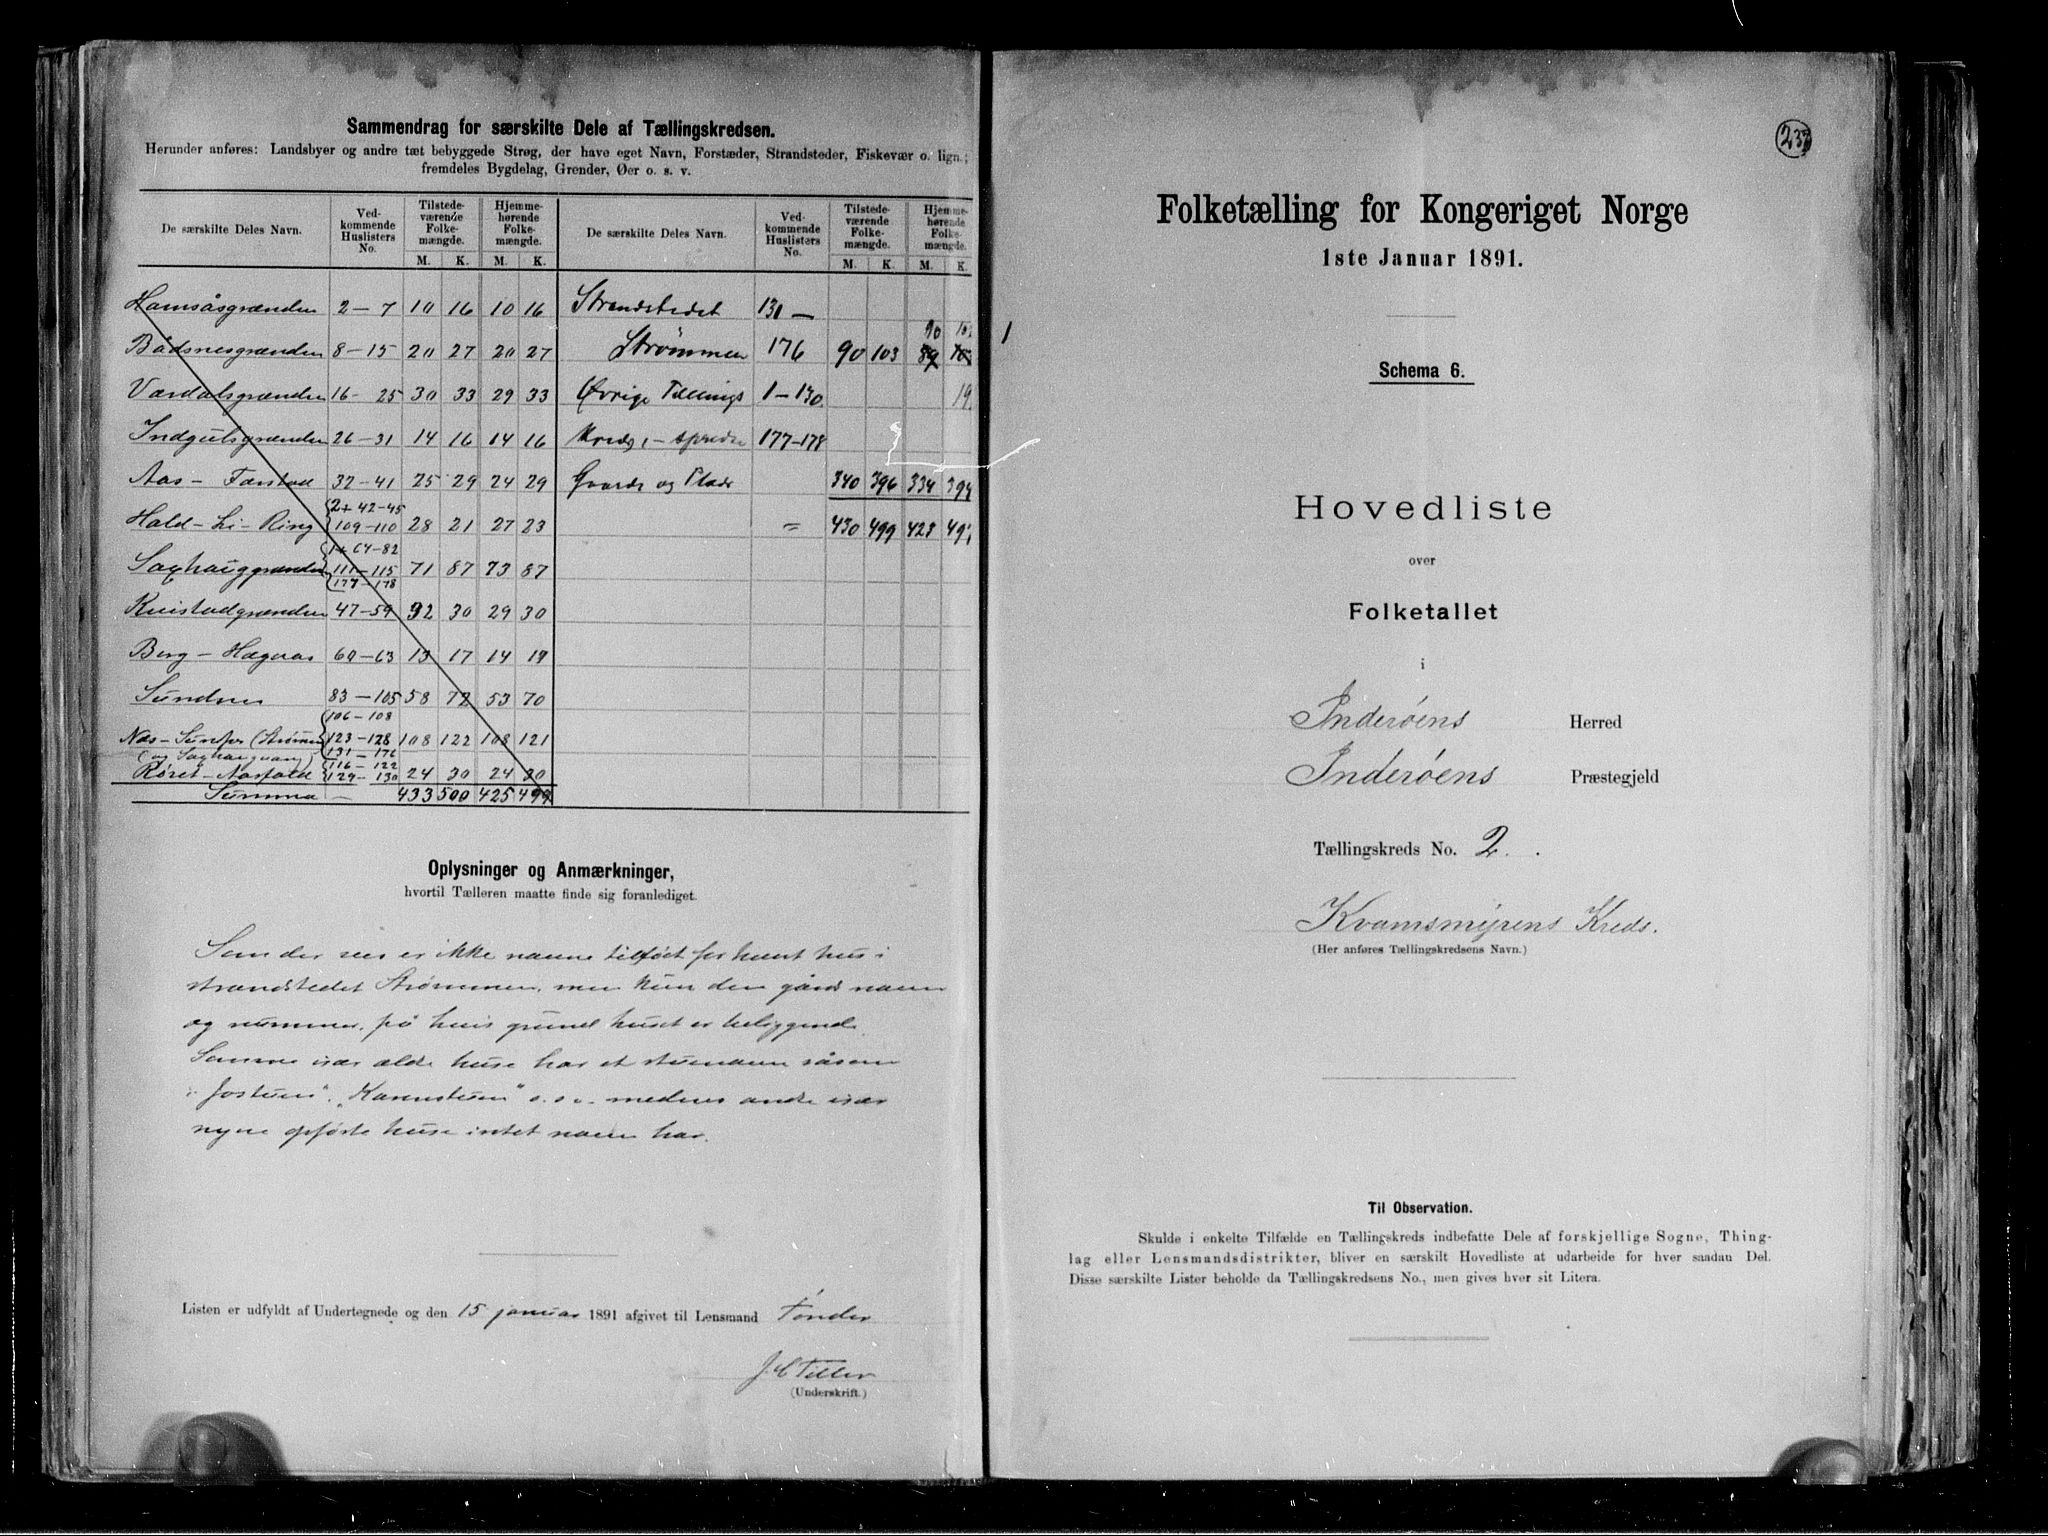 Sammendrag for særskilte Dele af Tællingskredsen.
Herunder anføres: Landsbyer og andre tæt bebyggede Strøg, der have eget Navn, Forstæder, Strandsteder, Fiskevær o. lign.;
fremdeles Bygdelag, Grender, Øer o. s. v.
De særskilte Deles Navn. Ved-kommende Huslisters No. Tilstede-værende Folke-mængde. M. K. Hjemme-hørende Folke-mængde. M. K.
De særskilte Deles Navn. Ved-kommende Huslisters No. Tilstede-værende Folke-mængde. M. K. Hjemme-hørende Folke-mængde. M. K.
Hamsåsgrænden 2 - 7 10 16 10 16
Bådsnesgrænden 8 - 15 20 27 20 27
Værdalsgrænden 16 - 25 30 33 29 33
Indgutsgrænden 26 - 31 14 16 14 16
Aas - Færstad 32 - 41 25 29 24 29
Hald - Li - Ring 2 + 42-45 109-110 28 21 27 23
Saxhauggrænden 1 + 64-82 111-115 177-178 71 87 73 87
Kvistadgrænden 47-59 32 30 29 30
Berg - Hægraas 60-63 13 17 14 19
Sundnes 83-105 58 72 53 70
Næs - (Strømen 106-108 123-128 131-176 108 122 108 121
(og Saxhaugvang)
Røret - 116-122 129-130 24 30 24 30
Summa - 433 500 425 499
Strandstedet 130 -
Strømmen 176 90 103 90
Øvrige Tællings 1 - 130
kreds, - spredte 177-178
Gaarde og Pladse 340 396 334 394
= 430 499 423
Oplysninger og Anmærkninger,
hvortil Tælleren maatte finde sig foranlediget.
Som der sees er ikke navne tilføit for hvert hus i
strandstedet Strømmen, men kun den gårds navn
og nummer, på hvis grund huset er beliggende.
Somme især ældre huse har et stuenavn såsom
"Jostuen", "Karenstuen" o.s.v. medens andre især
nyere opførte huse intet navn har.
Listen er udfyldt af Undertegnede og den 15 januar 1891 afgivet til Lensmand Tønder
J C Tiller
(Underskrift.)
Folketælling for Kongeriget Norge
1ste Januar 1891.
Schema 6.
Hovedliste
over
Folketallet
i
Inderøens Herred
Inderøens Præstegjeld
Tællingskreds No. 2.
Kvamsmyrens Kreds.
(Her anføres Tællingskredsens Navn.)
Til Observation.
Skulde i enkelte Tilfælde en Tællingskreds indbefatte Dele af forskjellige Sogne, Thing-
lag eller Lensmandsdistrikter, bliver en særskilt Hovedliste at udarbeide for hver saadan Del.
Disse særskilte Lister beholde da Tællingskredsens No., men gives hver sit Litera.